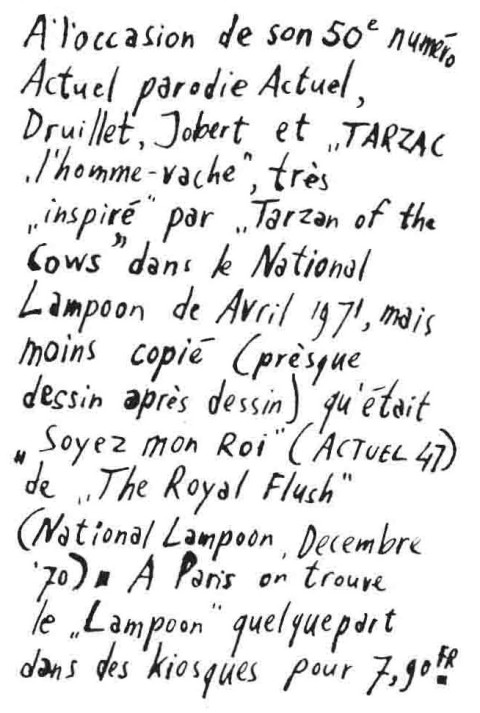 A l'occasion de son 50e numéro
Actuel parodie Actuel,
Druillet, Jobert et „TARZAC
l'homme-vache", très
„inspiré" par „Tarzan of the
Cows" dans le National
Lampoon de Avril 1971, mais
moins copié (prèsque
dessin après dessin) qu'était
„Soyez mon Roi" (ACTUEL 47)
de „The Royal Flush"
(National Lampoon, Decembre
'70). A Paris on trouve
le „Lampoon" quelquepart
dans des kiosques pour 7,90 FR.